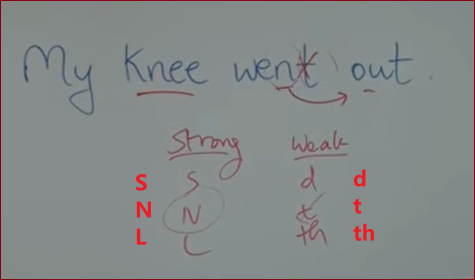 My Knee went out.
Strong Weak
S S d d
N N t t
L L th th